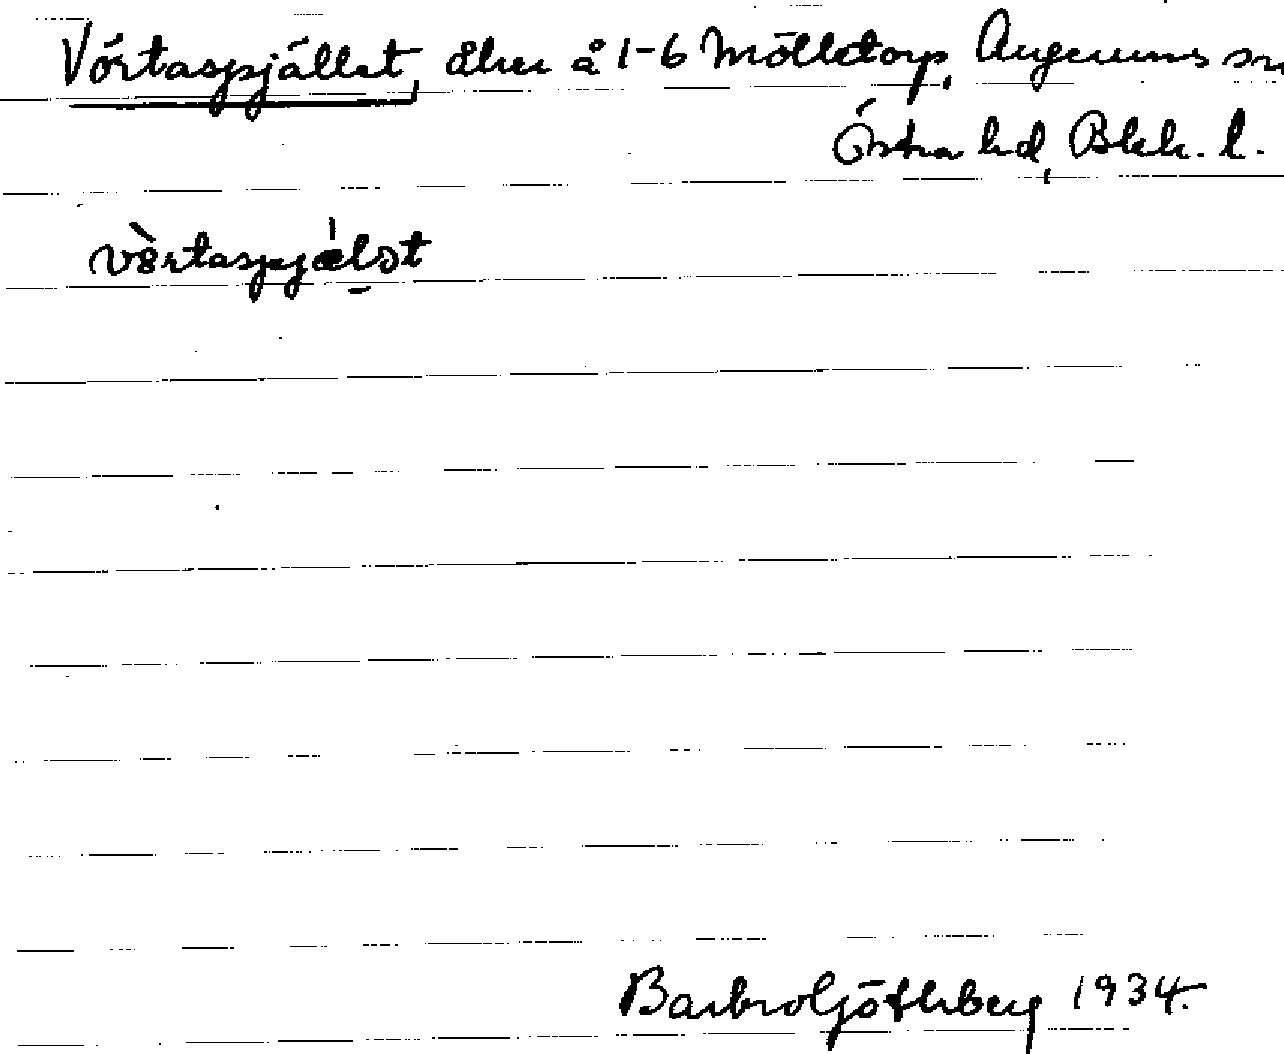 Vörtaspjället, åker å 1-6 Mölletorp, Augerums sn
Östra hd, Blek. l.
vörtaspjælət
Barbro Göthberg 1934.